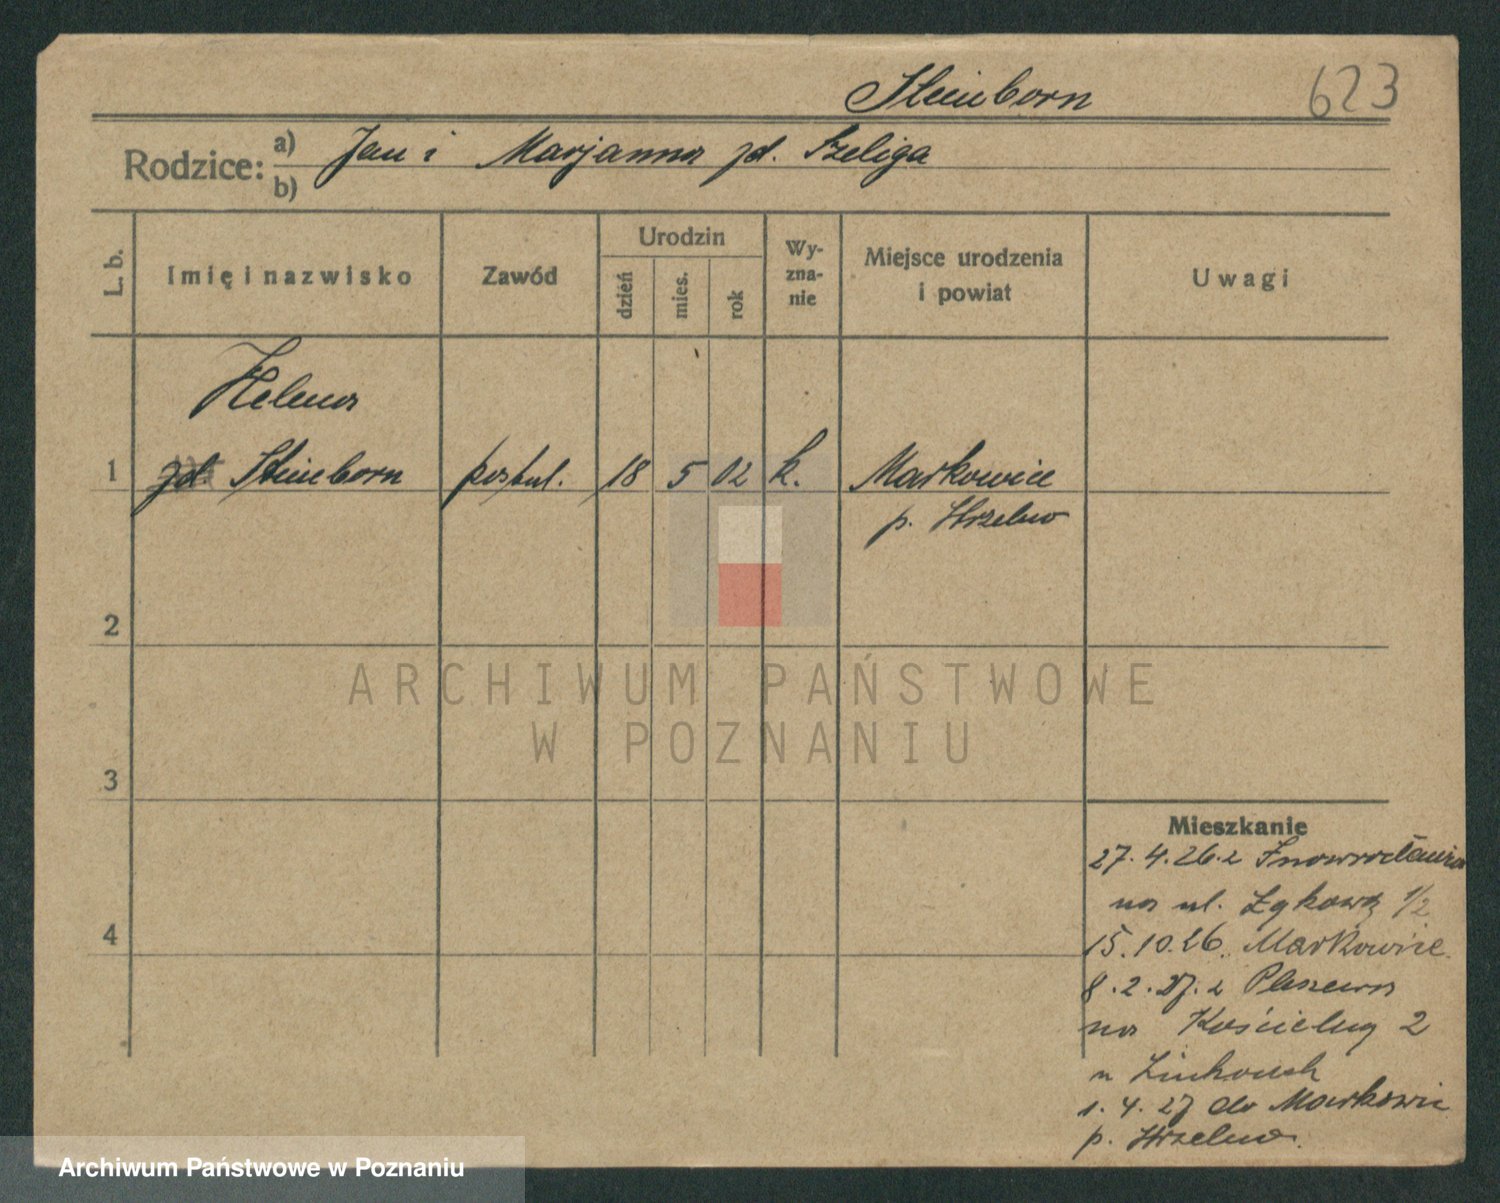 Steinborn 623
Rodzice: a) Jan i Marjanna zd. Szeliga
b)
L. b. Imię i nazwisko Zawód Urodzin dzień mies. rok Wy-zna-nie Miejsce urodzenia i powiat Uwagi
Helena
1 zd. Steinborn 18 5 02 k. Markowice
p. Strzelno
2
ARCHIWUM PAŃSTWOWE
W POZNANIU
3
Mieszkanie
27. 4. 26. z Inowrocławia
na ul. 1/2
4
15. 10. 26. Markowice
8. 2. 27. z Pleszewa
na 2
1. 4. 27 do Markowic
p. Strzelno.
Archiwum Państwowe w Poznaniu